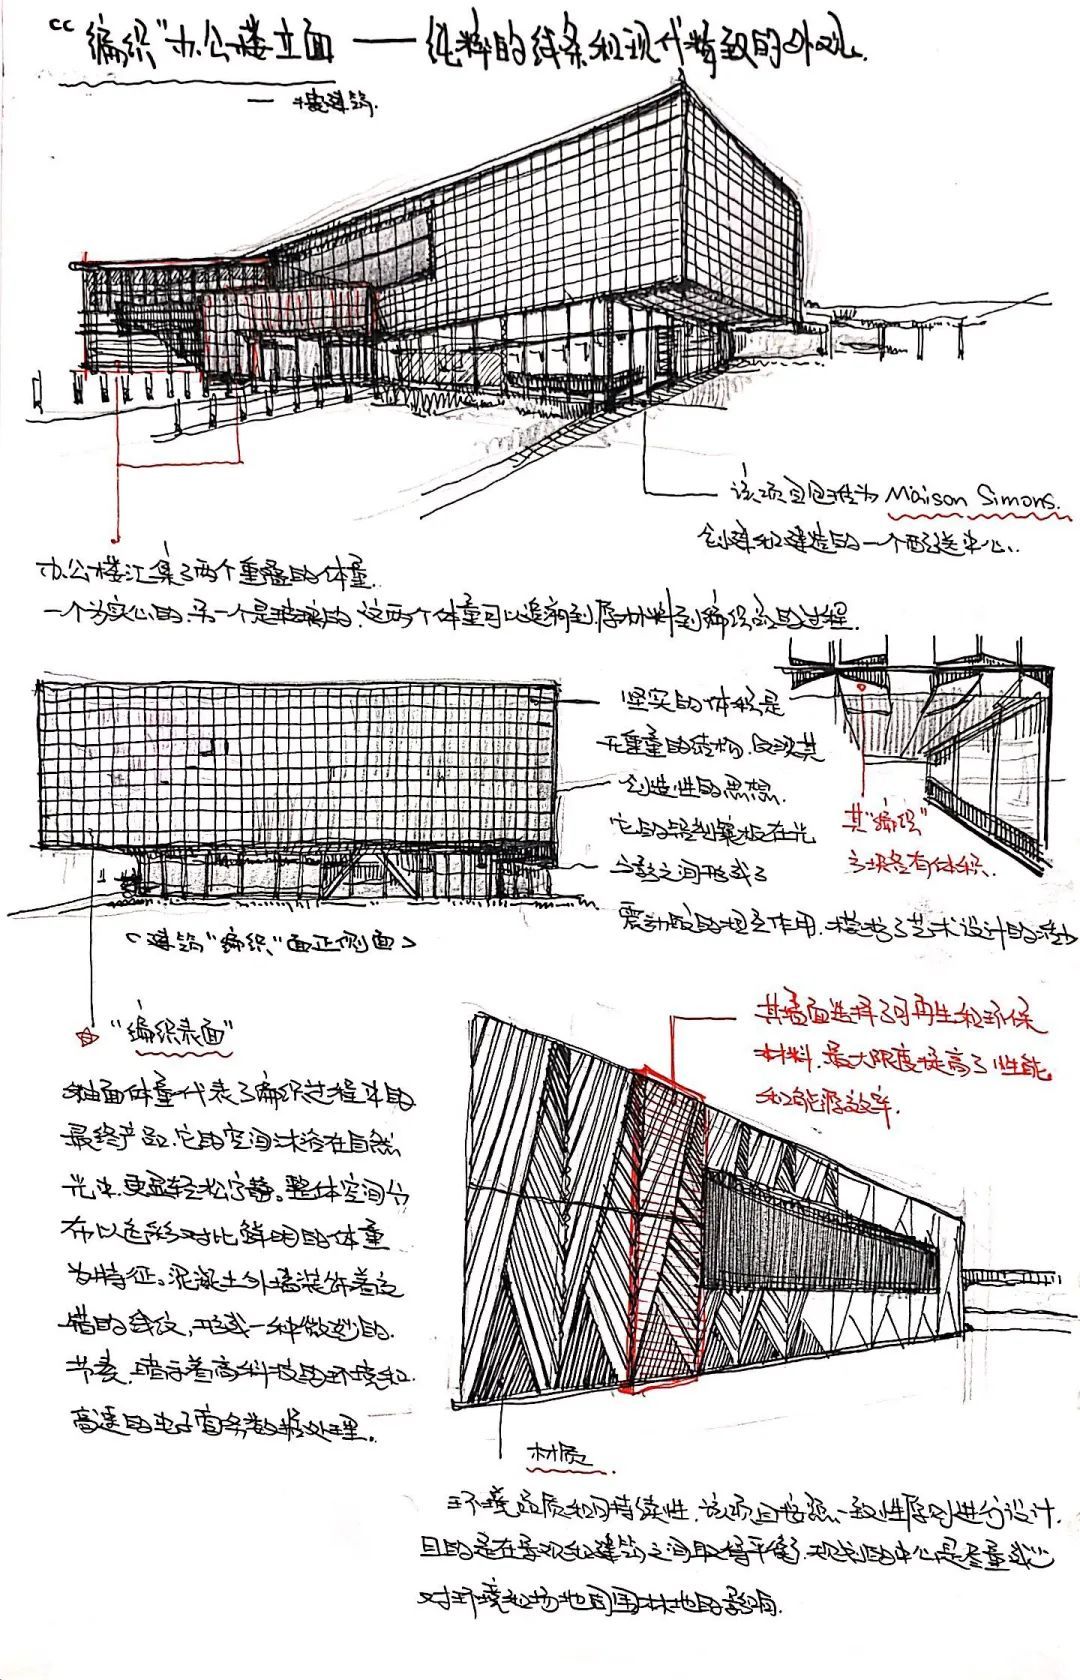 “编织”办公楼立面 —— 纯粹的线条和现代精致的外观.
— 楼建筑.
该项目包括为 Maison Simons.
创建和建造的一个配送中心.
办公楼汇集了两个重叠的体量.
一个为实心的.另一个是玻璃的.这两个体量可以追溯到原材料到编织的过程.
坚实的体积是
无重量的结构.反映其
创造性的思想.
它的铝制镶板在光
与影之间形成了
震动般的相互作用.模拟了艺术设计的
其“编织”
立
有体积.
<建筑“编织”面正侧面>
“编织表面”
轴面体量代表了编织过程中的
最终产品.它的空间沐浴在自然
光中.更显轻松宁静。整体空间分
布以色彩对比鲜明的体量
为特征。混凝土外墙装饰着交
错的线纹,形成一种微妙的.
节奏,暗示着高科技的环境和.
高速的电子商务数据处理。
其墙面选择了可再生和环保
材料.最大限度提高了性能
和能源效率.
材质
环境品质和可持续性.该项目按照一致性原则进行设计.
目的是在景观和建筑之间取得平衡.规划的中心是尽量减少
对环境和场地周围林地的影响.